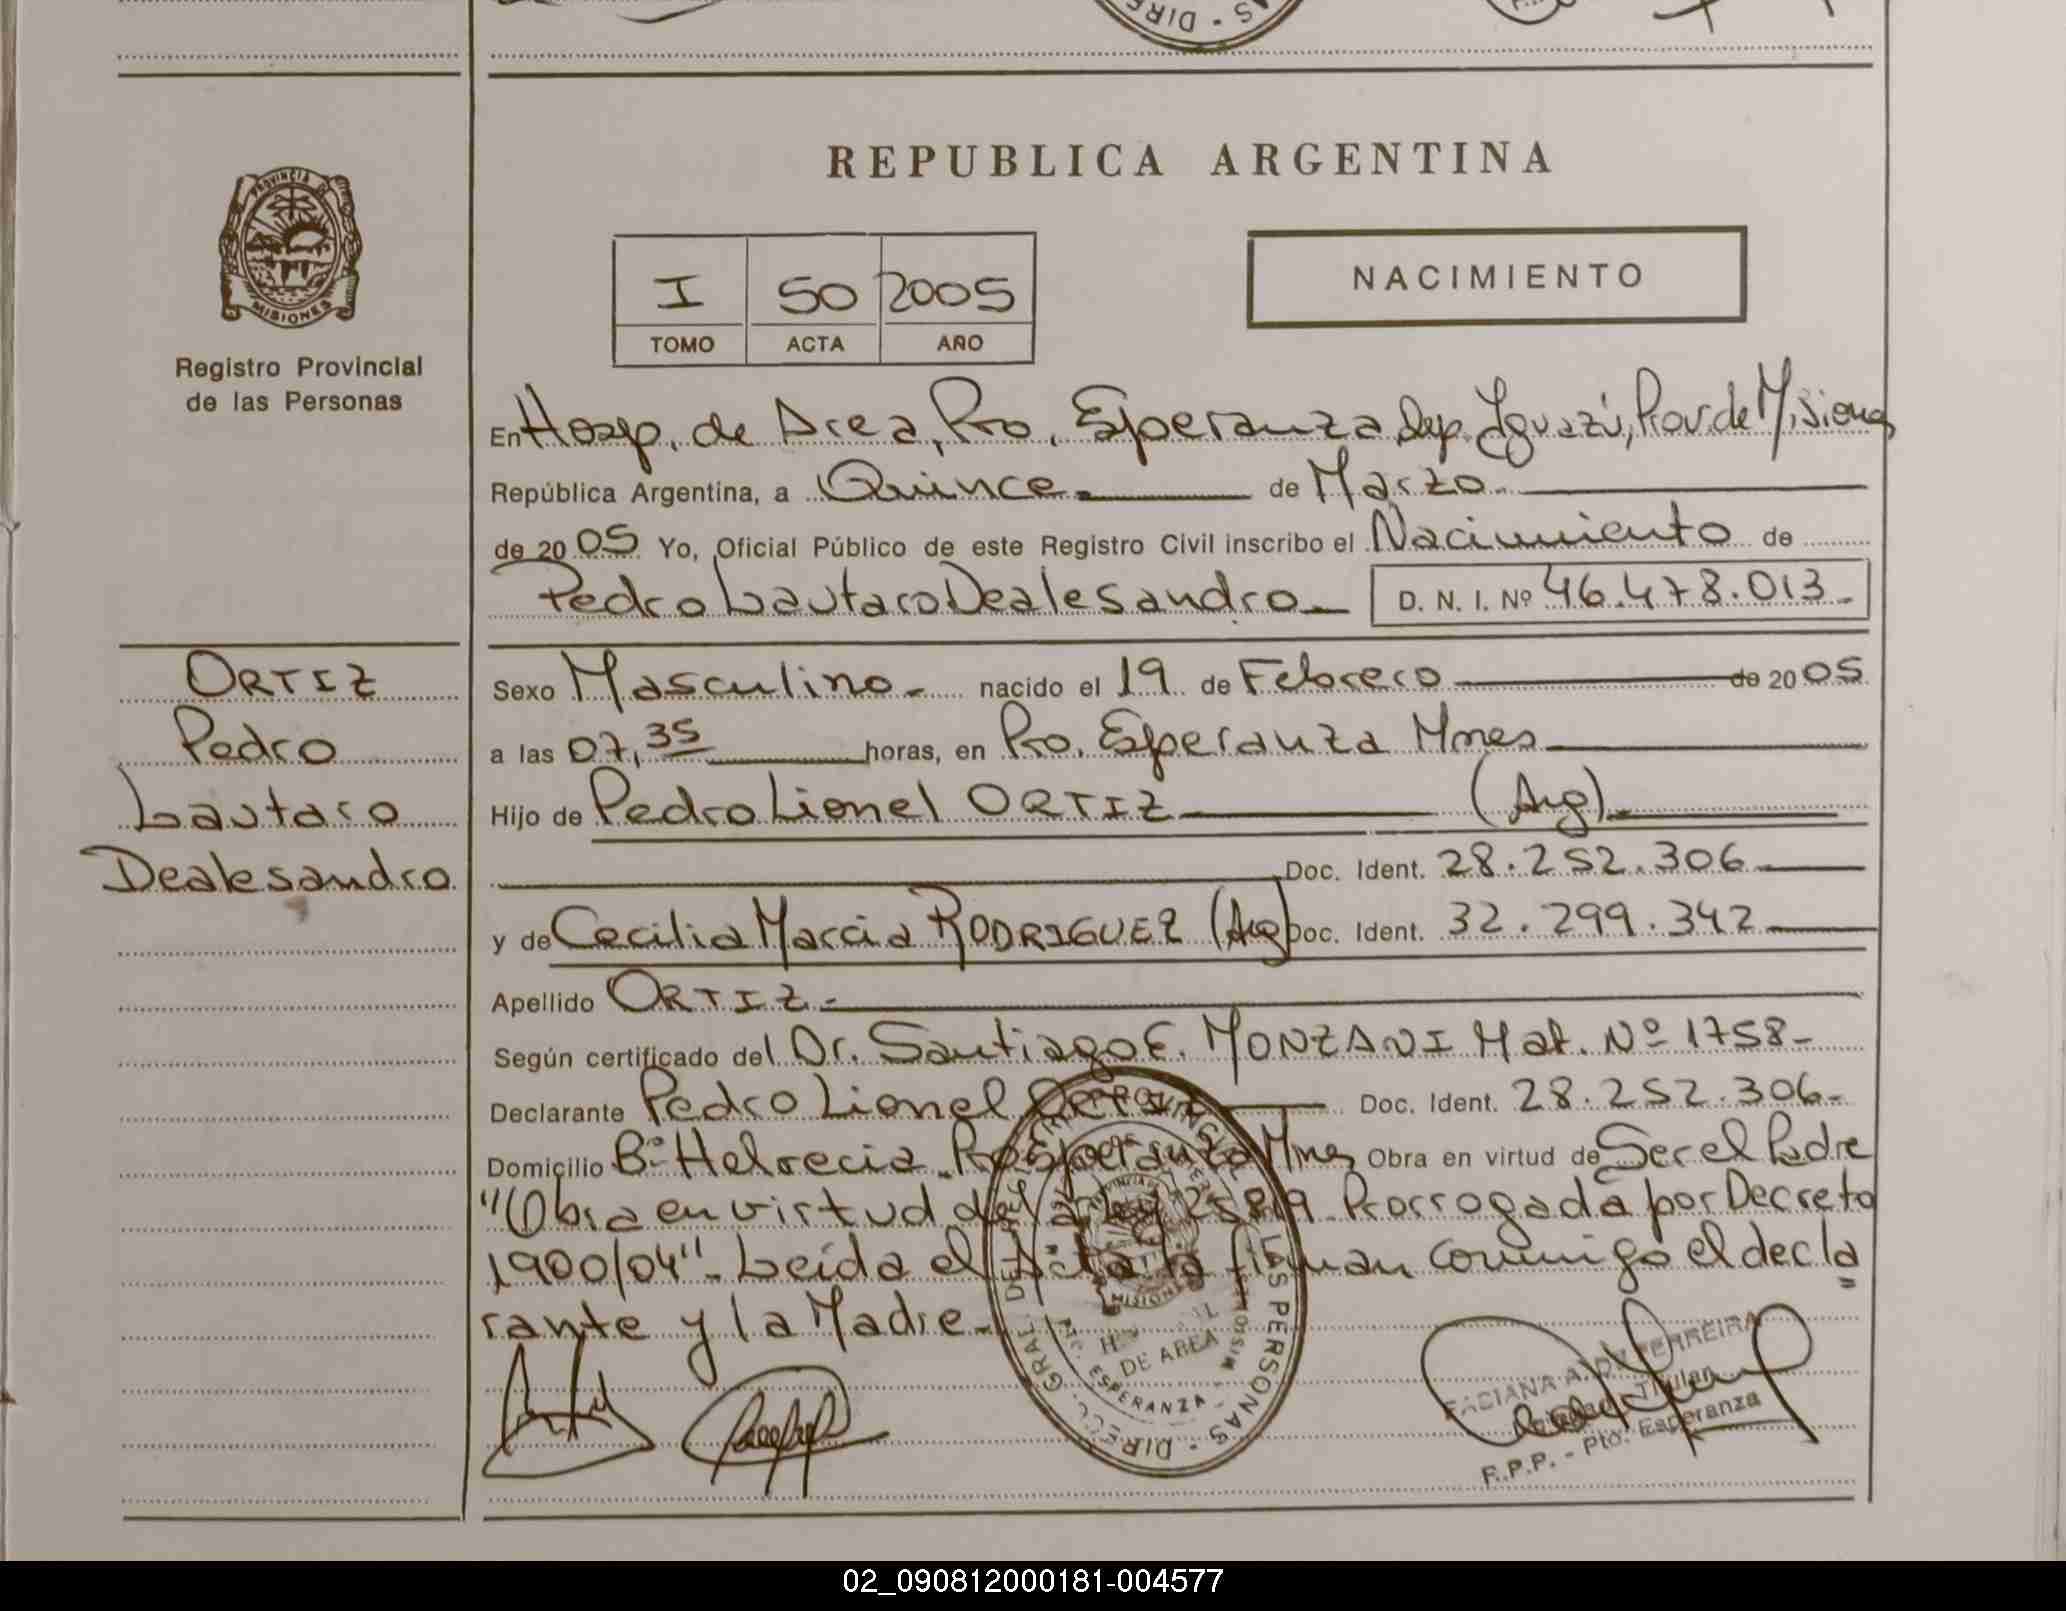 DIRE
AS
REPUBLICA ARGENTINA
PROVINCIA DE
MISIONES
Registro Provincial
de las Personas
I 50 2005
TOMO ACTA AÑO
NACIMIENTO
En Hosp. de Area, Pto. Esperanza Dep. Iguazú, Prov. de Misiones
República Argentina, a Quince de Marzo
de 2005 Yo, Oficial Público de este Registro Civil inscribo el Nacimiento de
Pedro Lautaro Dealesandro D. N. I. Nº 46.478.013.-
ORTIZ
Pedro
Lautaro
Dealesandro
Sexo Masculino.- nacido el 19 de Febrero de 2005
a las 07,35 horas, en Pto. Esperanza Mnes
Hijo de Pedro Lionel ORTIZ (Arg).
Doc. Ident. 28.252.306
y de Cecilia Marcia RODRIGUEZ (Arg) Doc. Ident. 32.299.342
Apellido ORTIZ.-
Según certificado del Dr. Santiago E. MONZANI Mat. Nº 1758-
Declarante Pedro Lionel ORTIZ Doc. Ident. 28.252.306-
Domicilio Bº Helvecia. Pto Esperanza Mnes Obra en virtud de Ser el Padre
"Obra en virtud de la ley 25819 Prorrogada por Decreto
1900/04"- Leída el Acta la firman conmigo el decla
rante y la Madre.-
DIRECC. GRAL. DEL REG. PROVINCIAL DE LAS PERSONAS
MISIONES
DE AREA
ESPERANZA
FERREIRA
Titular
F.P.P. - Pto. Esperanza
02_090812000181-004577